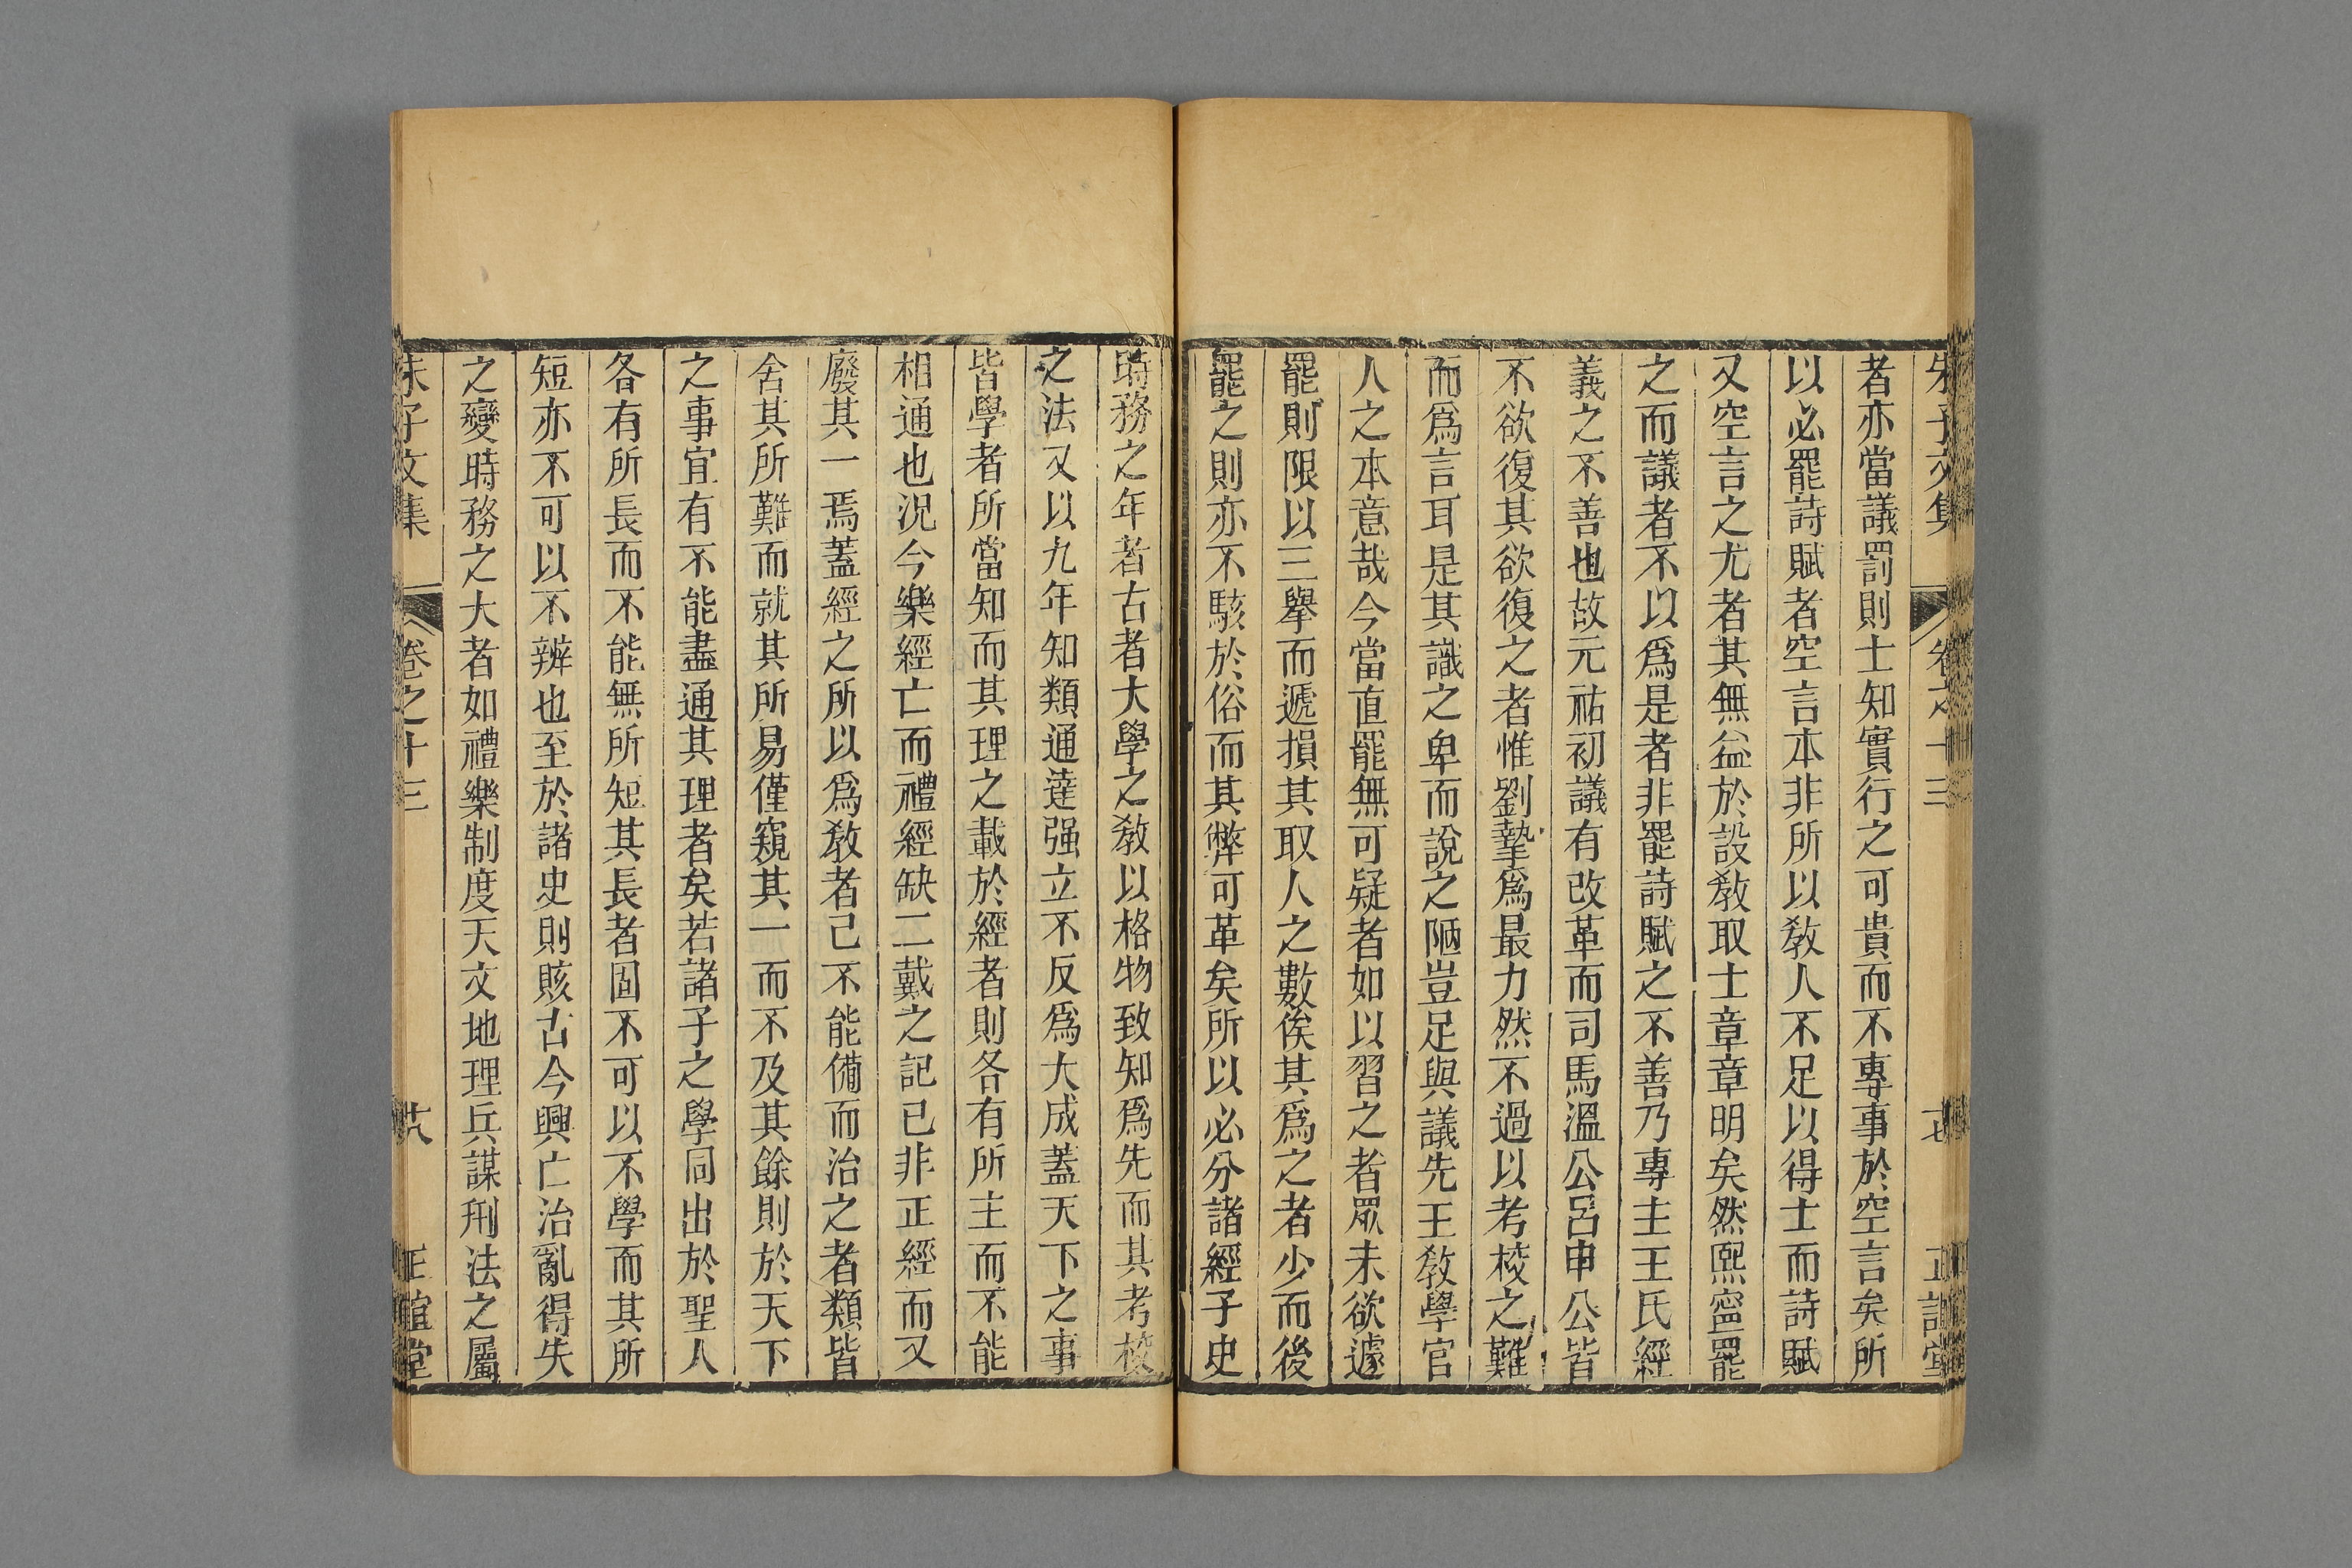 朱子文集 卷之十三 十七 正誼堂
者亦當議罰則士知實行之可貴而不專事於空言矣所
以必罷詩賦者空言本非所以教人不足以得士而詩賦
又空言之尤者其無益於設教取士章章明矣然熙寧罷
之而議者不以爲是者非罷詩賦之不善乃專主王氏經
義之不善也故元祐初議有改革而司馬溫公呂申公皆
不欲復其欲復之者惟劉摯爲最力然不過以考校之難
而爲言耳是其識之卑而說之陋豈足與議先王敎學官
人之本意哉今當直罷無可疑者如以習之者眾未欲遽
罷則限以三舉而遞損其取人之數俟其爲之者少而後
罷之則亦不駭於俗而其弊可革矣所以必分諸經子史
時務之年者古者大學之敎以格物致知爲先而其考校
之法又以九年知類通達强立不反爲大成蓋天下之事
皆學者所當知而其理之載於經者則各有所主而不能
相通也況今樂經亡而禮經缺二戴之記已非正經而又
廢其一焉蓋經之所以爲敎者已不能備而治之者類皆
舍其所難而就其所易僅窺其一而不及其餘則於天下
之事宜有不能盡通其理者矣若諸子之學同出於聖人
各有所長而不能無所短其長者固不可以不學而其所
短亦不可以不辨也至於諸史則賅古今興亡治亂得失
之變時務之大者如禮樂制度天文地理兵謀刑法之屬
朱子文集 卷之十三 十八 正誼堂